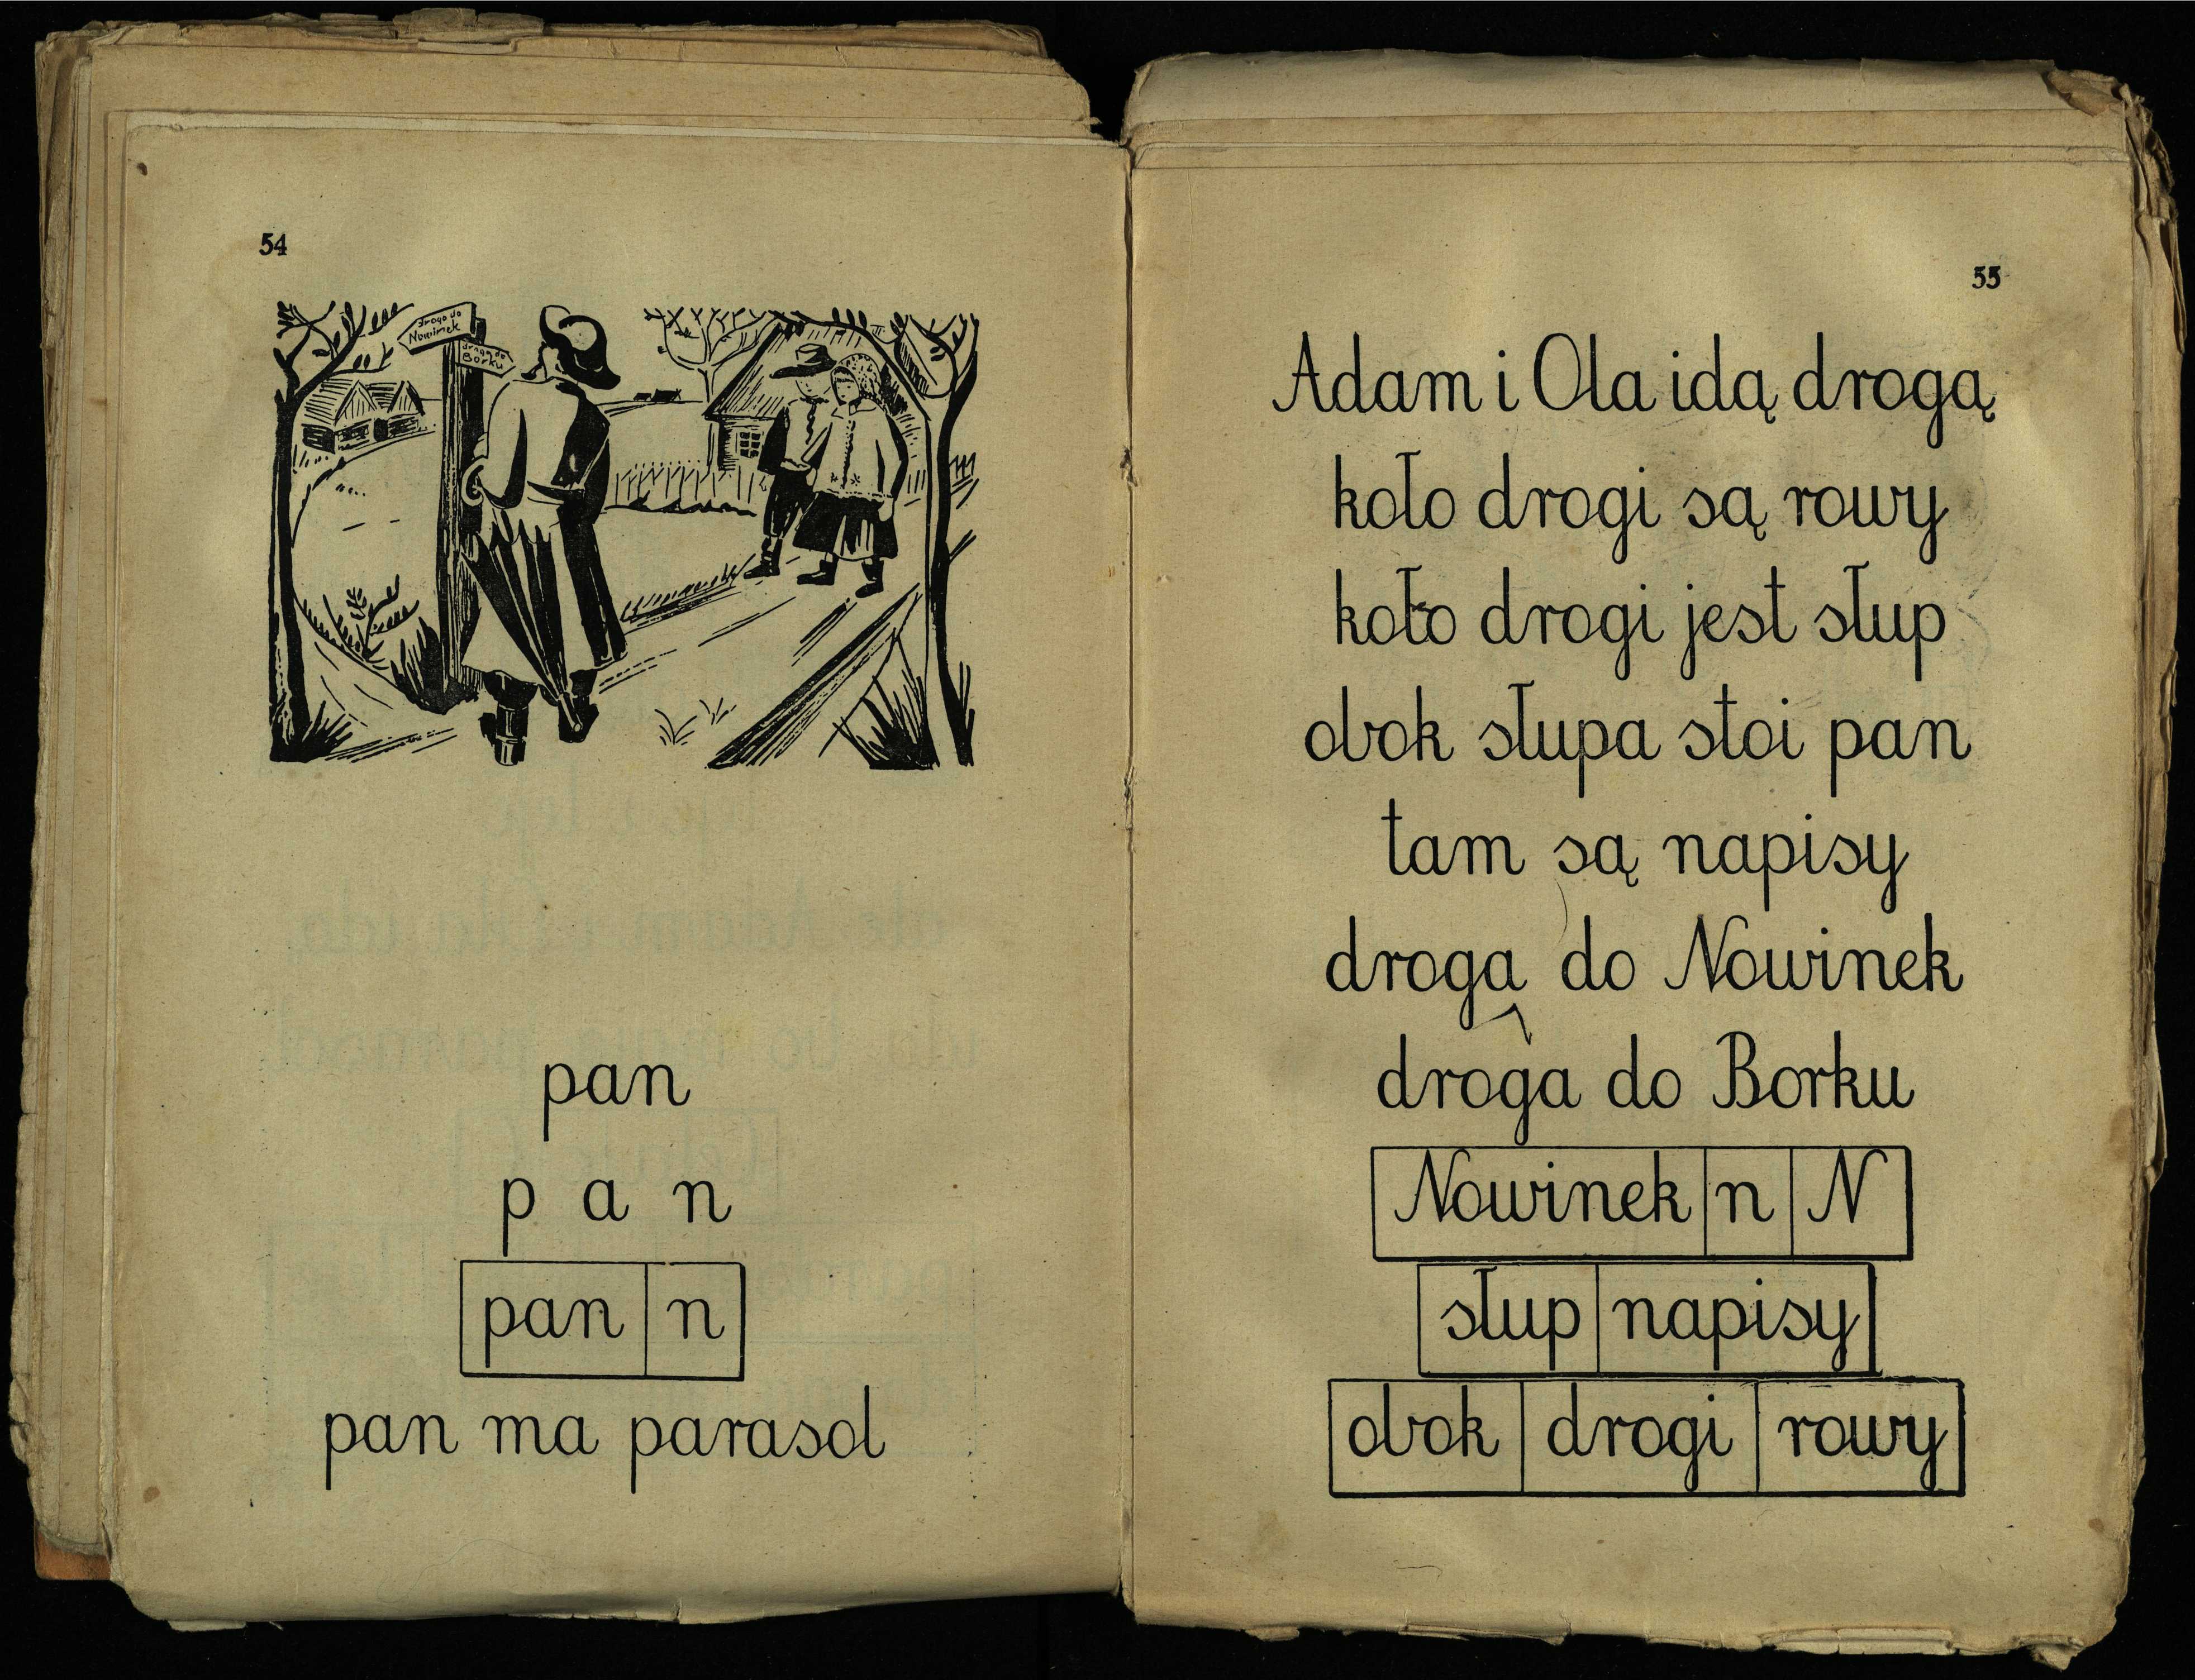 54
droga do
Nowinek
droga do
Borku
pan
p a n
pan n
pan ma parasol
55
Adam i Ola idą drogą
koło drogi są rowy
koło drogi jest słup
obok słupa stoi pan
tam są napisy
droga do Nowinek
droga do Borku
Nowinek n N
słup napisy
obok drogi rowy